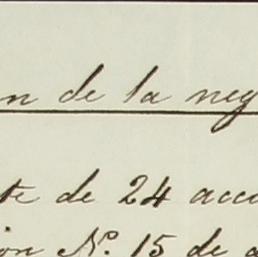 n de la neg
te de 24 acci
ión Nº 15 de a